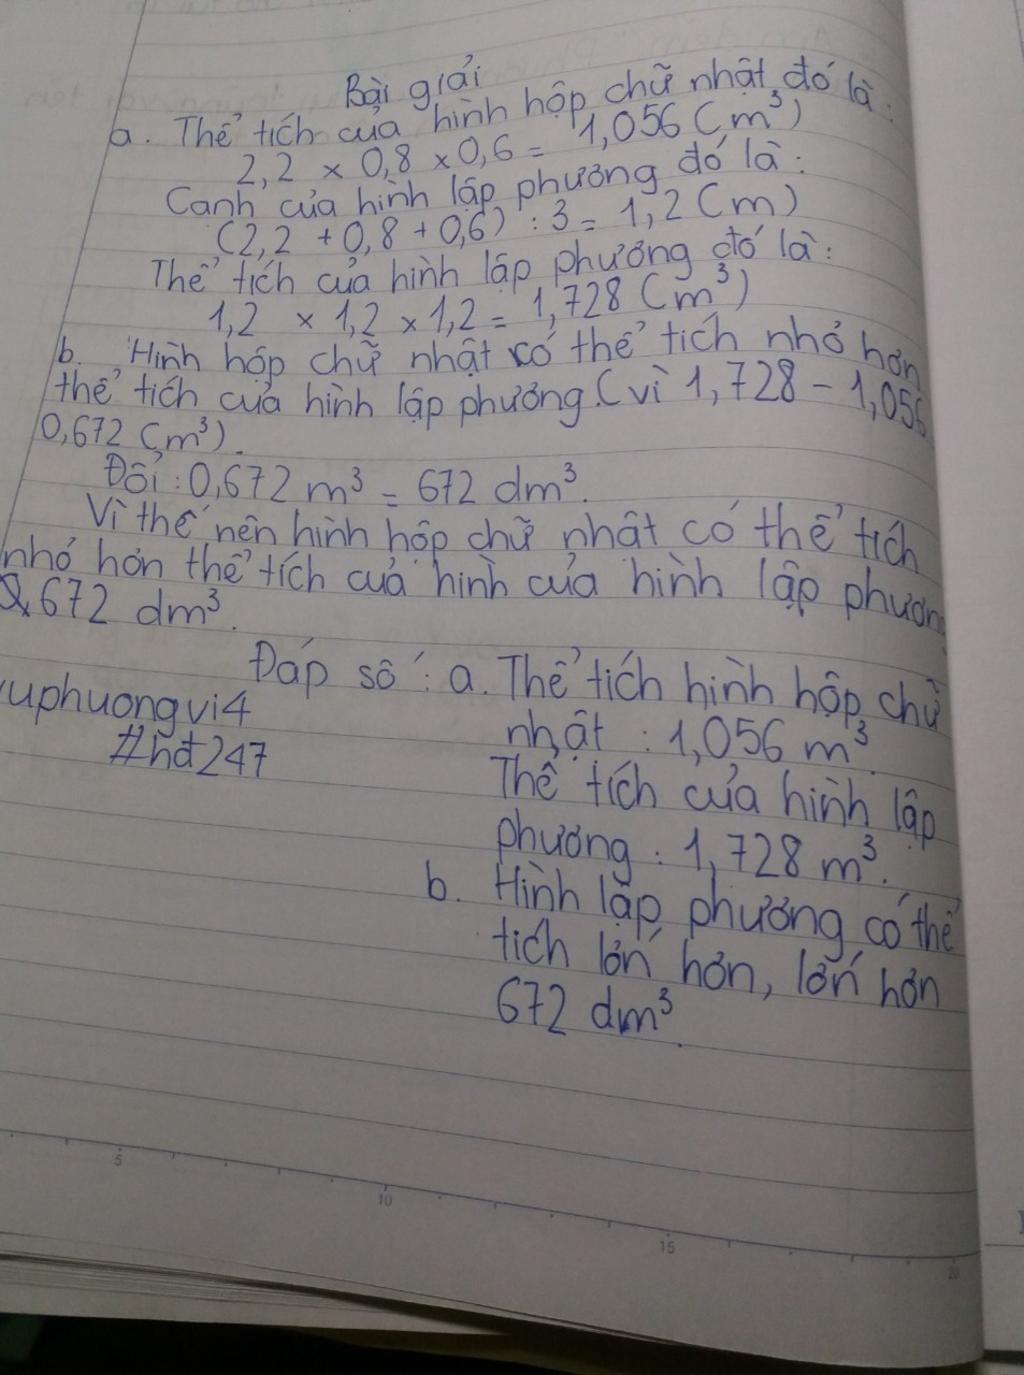 Bài giải
a. Thể tích của hình hộp chữ nhật đó là:
2,2 x 0,8 x 0,6 = 1,056 (m³)
Cạnh của hình lập phương đó là:
(2,2 + 0,8 + 0,6) : 3 = 1,2 (m)
Thể tích của hình lập phương đó là:
1,2 x 1,2 x 1,2 = 1,728 (m³)
b. Hình hộp chữ nhật có thể tích nhỏ hơn
thể tích của hình lập phương.(vì 1,728 - 1,056
0,672 (m³).
Đổi : 0,672 m³ = 672 dm³.
Vì thế nên hình hộp chữ nhật có thể tích
nhỏ hơn thể tích của hình của hình lập phương
672 dm³.
Đáp số : a. Thể tích hình hộp chữ
nhật : 1,056 m³.
Thể tích của hình lập
phương : 1,728 m³.
b. Hình lập phương có thể
tích lớn hơn, lớn hơn
672 dm³.
uphuongvi4
#hđ247
5
10
15
20